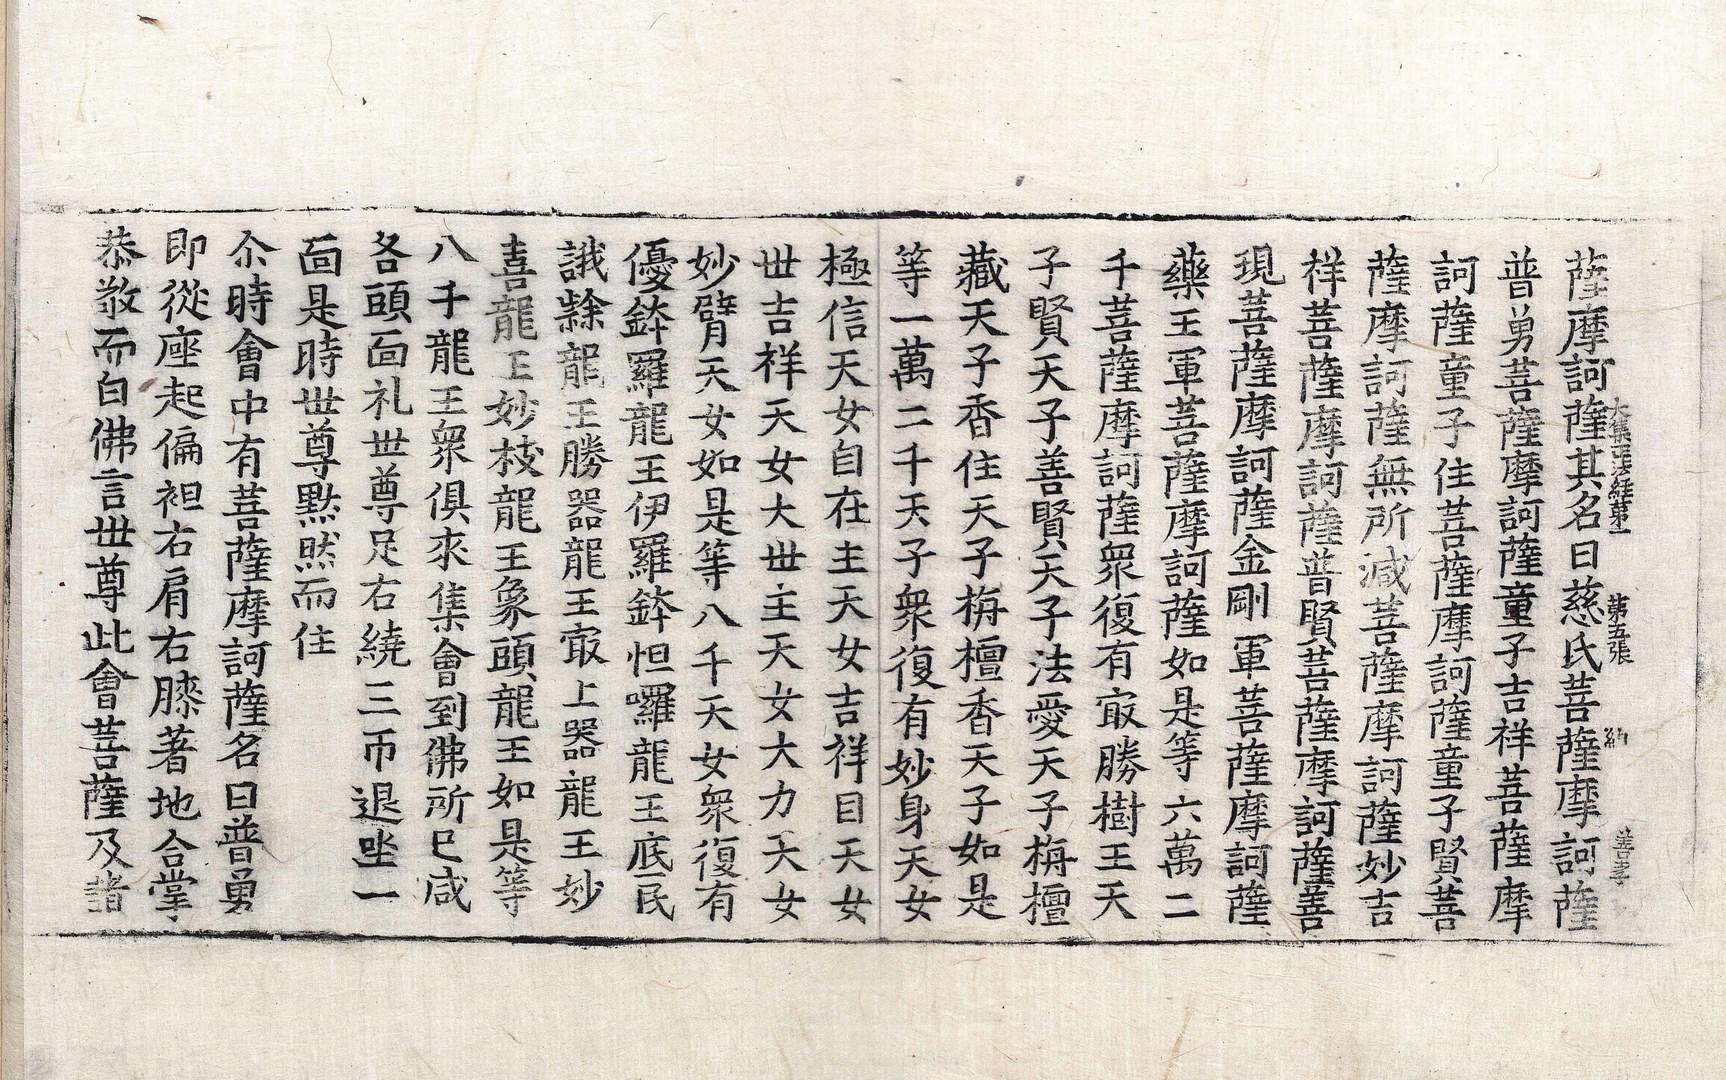 大集正法經第一　第五張　納
薩摩訶薩其名曰慈氏菩薩摩訶薩
普勇菩薩摩訶薩童子吉祥菩薩摩
訶薩童子住菩薩摩訶薩童子賢菩
薩摩訶薩無所減菩薩摩訶薩妙吉
祥菩薩摩訶薩普賢菩薩摩訶薩善
現菩薩摩訶薩金剛軍菩薩摩訶薩
藥王軍菩薩摩訶薩如是等六萬二
千菩薩摩訶薩衆復有㝡勝樹王天
子賢天子善賢天子法愛天子栴檀
藏天子香住天子栴檀香天子如是
等一萬二千天子衆復有妙身天女
極信天女自在主天女吉祥目天女
世吉祥天女大世主天女大力天女
妙臂天女如是等八千天女衆復有
優鉢羅龍王伊羅鉢怛囉龍王底民
誐隸龍王勝器龍王㝡上器龍王妙
喜龍王妙枝龍王象頭龍王如是等
八千龍王衆俱來集會到佛所已咸
各頭面礼世尊足右繞三帀退坐一
面是時世尊默然而住
尒時會中有菩薩摩訶薩名曰普勇
即從座起偏袒右肩右膝著地合掌
恭敬而白佛言世尊此會菩薩及諸